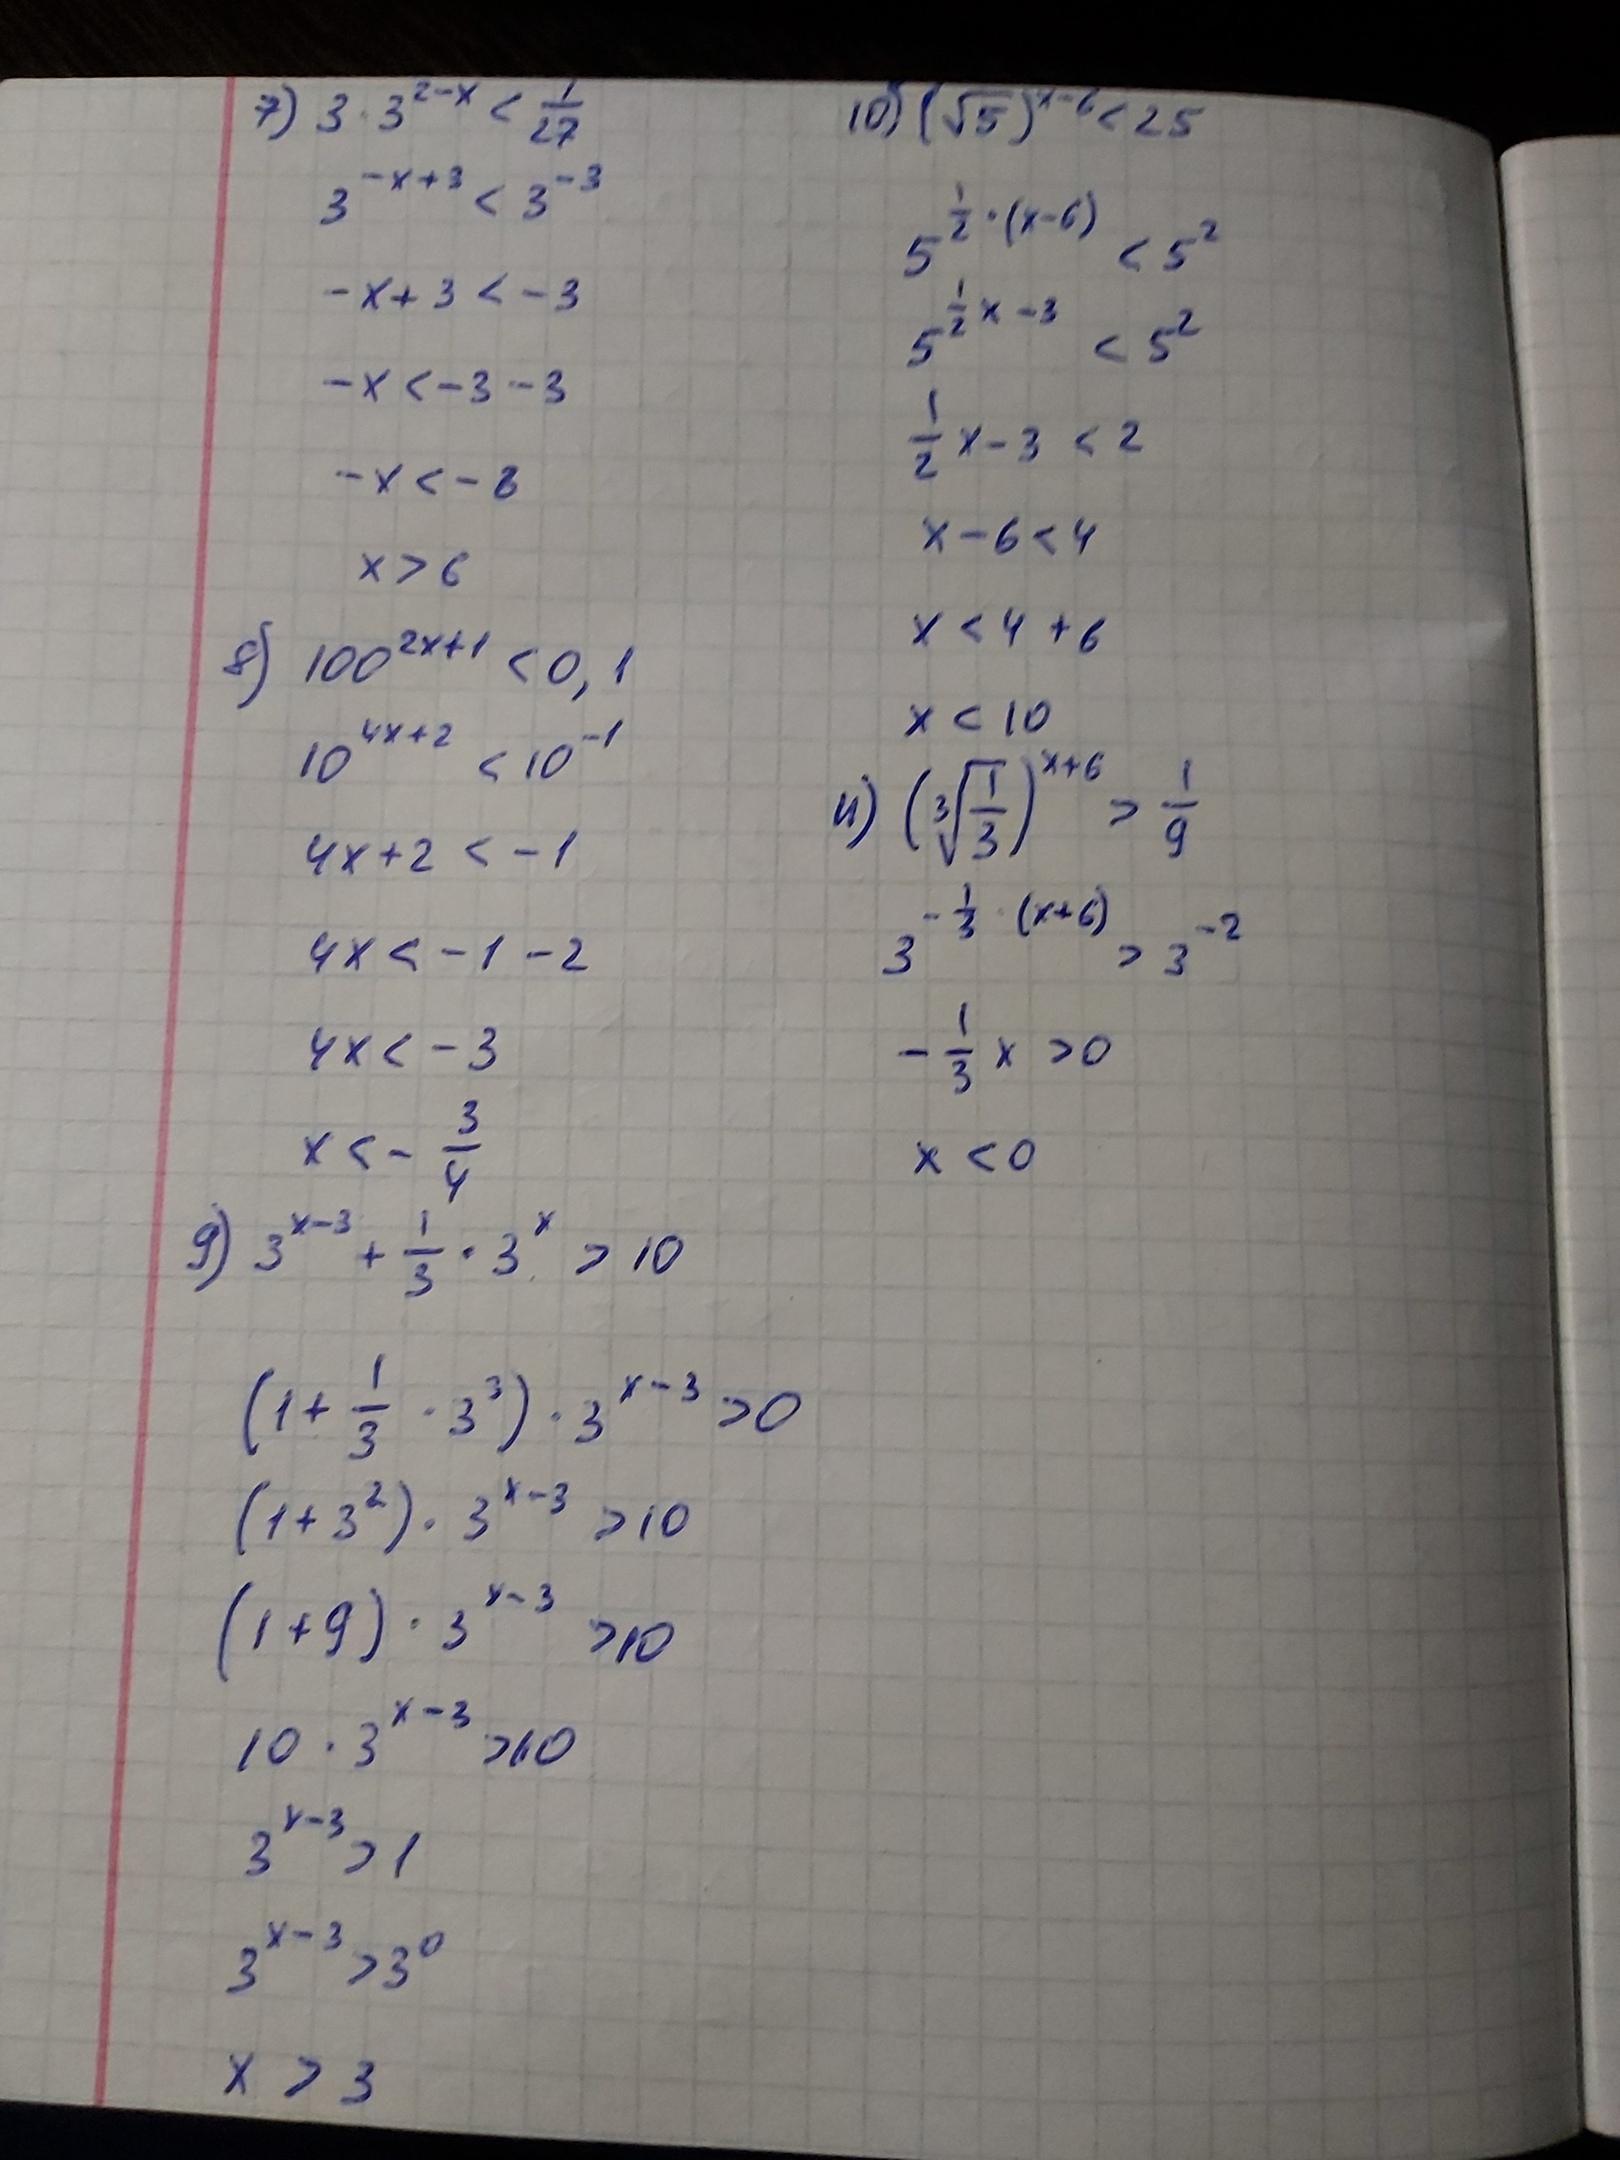 7) 3 · 3^{2-x} < 1/27
3^{-x+3} < 3^{-3}
-x+3 < -3
-x < -3 -3
-x < -6
x > 6
8) 100^{2x+1} < 0,1
10^{4x+2} < 10^{-1}
4x+2 < -1
4x < -1 -2
4x < -3
x < - 3/4
9) 3^{x-3} + 1/3 · 3^x > 10
(1 + 1/3 · 3^3) · 3^{x-3} > 0
(1+3^2) · 3^{x-3} > 10
(1+9) · 3^{x-3} > 10
10 · 3^{x-3} > 10
3^{x-3} > 1
3^{x-3} > 3^0
x > 3
10) (√5)^{x-6} < 25
5^{1/2 · (x-6)} < 5^2
5^{1/2 x - 3} < 5^2
1/2 x - 3 < 2
x - 6 < 4
x < 4 + 6
x < 10
11) (∛(1/3))^{x+6} > 1/9
3^{-1/3 · (x+6)} > 3^{-2}
- 1/3 x > 0
x < 0